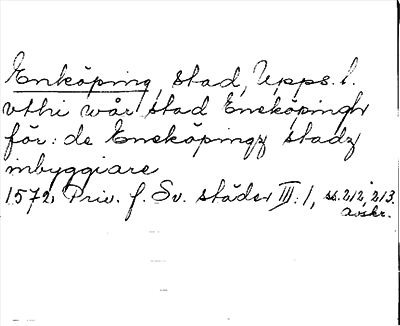 Enköping, stad, Upps. l.
vthi wår stad Eneköpingh
för: de Eneköpingz stadz
inbyggiare
1572, Priv. f. Sv. städer III: 1, ss. 212, 213.
avskr.